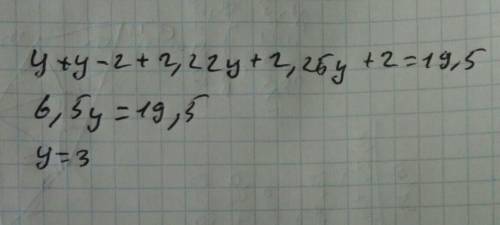 y+y-2+2,22y+2,25y+2=19,5
6,5y=19,5
y=3